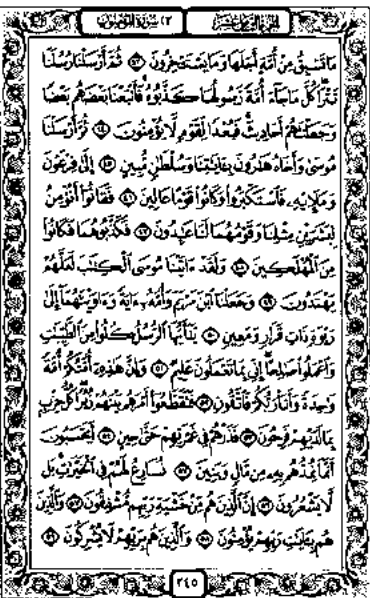 الجزء الثامن عشر
سورة المؤمنون
مَا تَسْبِقُ مِنْ أُمَّةٍ أَجَلَهَا وَمَا يَسْتَـْٔخِرُونَ ٤٣ ثُمَّ أَرْسَلْنَا رُسُلَنَا
تَتْرَا كُلَّ مَا جَآءَ أُمَّةً رَّسُولُهَا كَذَّبُوهُ فَأَتْبَعْنَا بَعْضَهُم بَعْضًا
وَجَعَلْنَٰهُمْ أَحَادِيثَ فَبُعْدًا لِّقَوْمٍ لَّا يُؤْمِنُونَ ٤٤ ثُمَّ أَرْسَلْنَا
مُوسَىٰ وَأَخَاهُ هَٰرُونَ بِـَٔايَٰتِنَا وَسُلْطَٰنٍ مُّبِينٍ ٤٥ إِلَىٰ فِرْعَوْنَ
وَمَلَإِيْهِۦ فَٱسْتَكْبَرُوا۟ وَكَانُوا۟ قَوْمًا عَالِينَ ٤٦ فَقَالُوٓا۟ أَنُؤْمِنُ
لِبَشَرَيْنِ مِثْلِنَا وَقَوْمُهُمَا لَنَا عَٰبِدُونَ ٤٧ فَكَذَّبُوهُمَا فَكَانُوا۟
مِنَ ٱلْمُهْلَكِينَ ٤٨ وَلَقَدْ ءَاتَيْنَا مُوسَى ٱلْكِتَٰبَ لَعَلَّهُمْ
يَهْتَدُونَ ٤٩ وَجَعَلْنَا ٱبْنَ مَرْيَمَ وَأُمَّهُۥٓ ءَايَةً وَءَاوَيْنَٰهُمَآ إِلَىٰ
رَبْوَةٍ ذَاتِ قَرَارٍ وَمَعِينٍ ٥٠ يَٰٓأَيُّهَا ٱلرُّسُلُ كُلُوا۟ مِنَ ٱلطَّيِّبَٰتِ
وَٱعْمَلُوا۟ صَٰلِحًا إِنِّى بِمَا تَعْمَلُونَ عَلِيمٌ ٥١ وَإِنَّ هَٰذِهِۦٓ أُمَّتُكُمْ أُمَّةً
وَٰحِدَةً وَأَنَا۠ رَبُّكُمْ فَٱتَّقُونِ ٥٢ فَتَقَطَّعُوٓا۟ أَمْرَهُم بَيْنَهُمْ زُبُرًا كُلُّ حِزْبٍۭ
بِمَا لَدَيْهِمْ فَرِحُونَ ٥٣ فَذَرْهُمْ فِى غَمْرَتِهِمْ حَتَّىٰ حِينٍ ٥٤ أَيَحْسَبُونَ
أَنَّمَا نُمِدُّهُم بِهِۦ مِن مَّالٍ وَبَنِينَ ٥٥ نُسَارِعُ لَهُمْ فِى ٱلْخَيْرَٰتِ بَل
لَّا يَشْعُرُونَ ٥٦ إِنَّ ٱلَّذِينَ هُم مِّنْ خَشْيَةِ رَبِّهِم مُّشْفِقُونَ ٥٧ وَٱلَّذِينَ
هُم بِـَٔايَٰتِ رَبِّهِمْ يُؤْمِنُونَ ٥٨ وَٱلَّذِينَ هُم بِرَبِّهِمْ لَا يُشْرِكُونَ ٥٩
٣٤٥